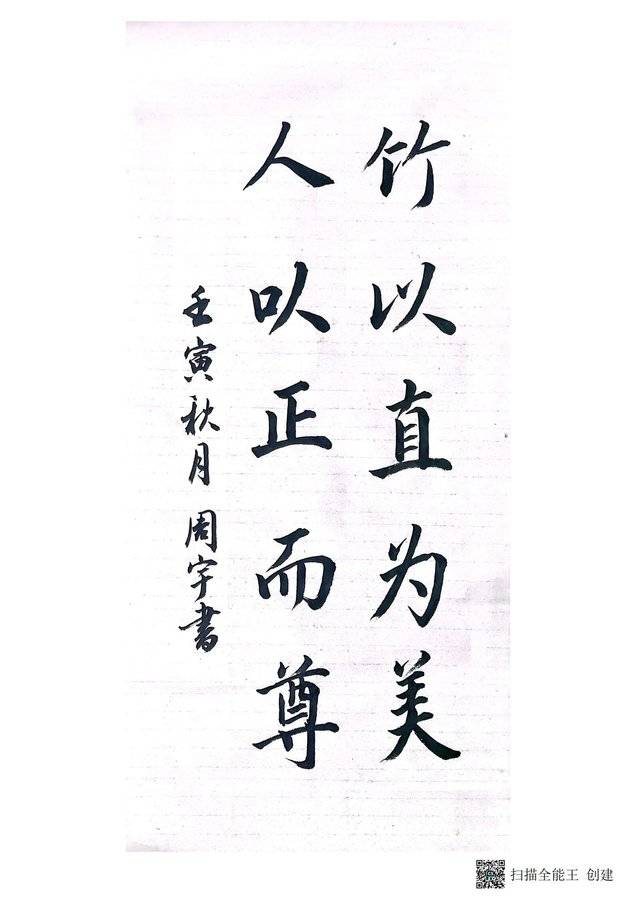 竹以直为美
人以正而尊
壬寅秋月 周宇書
扫描全能王 创建